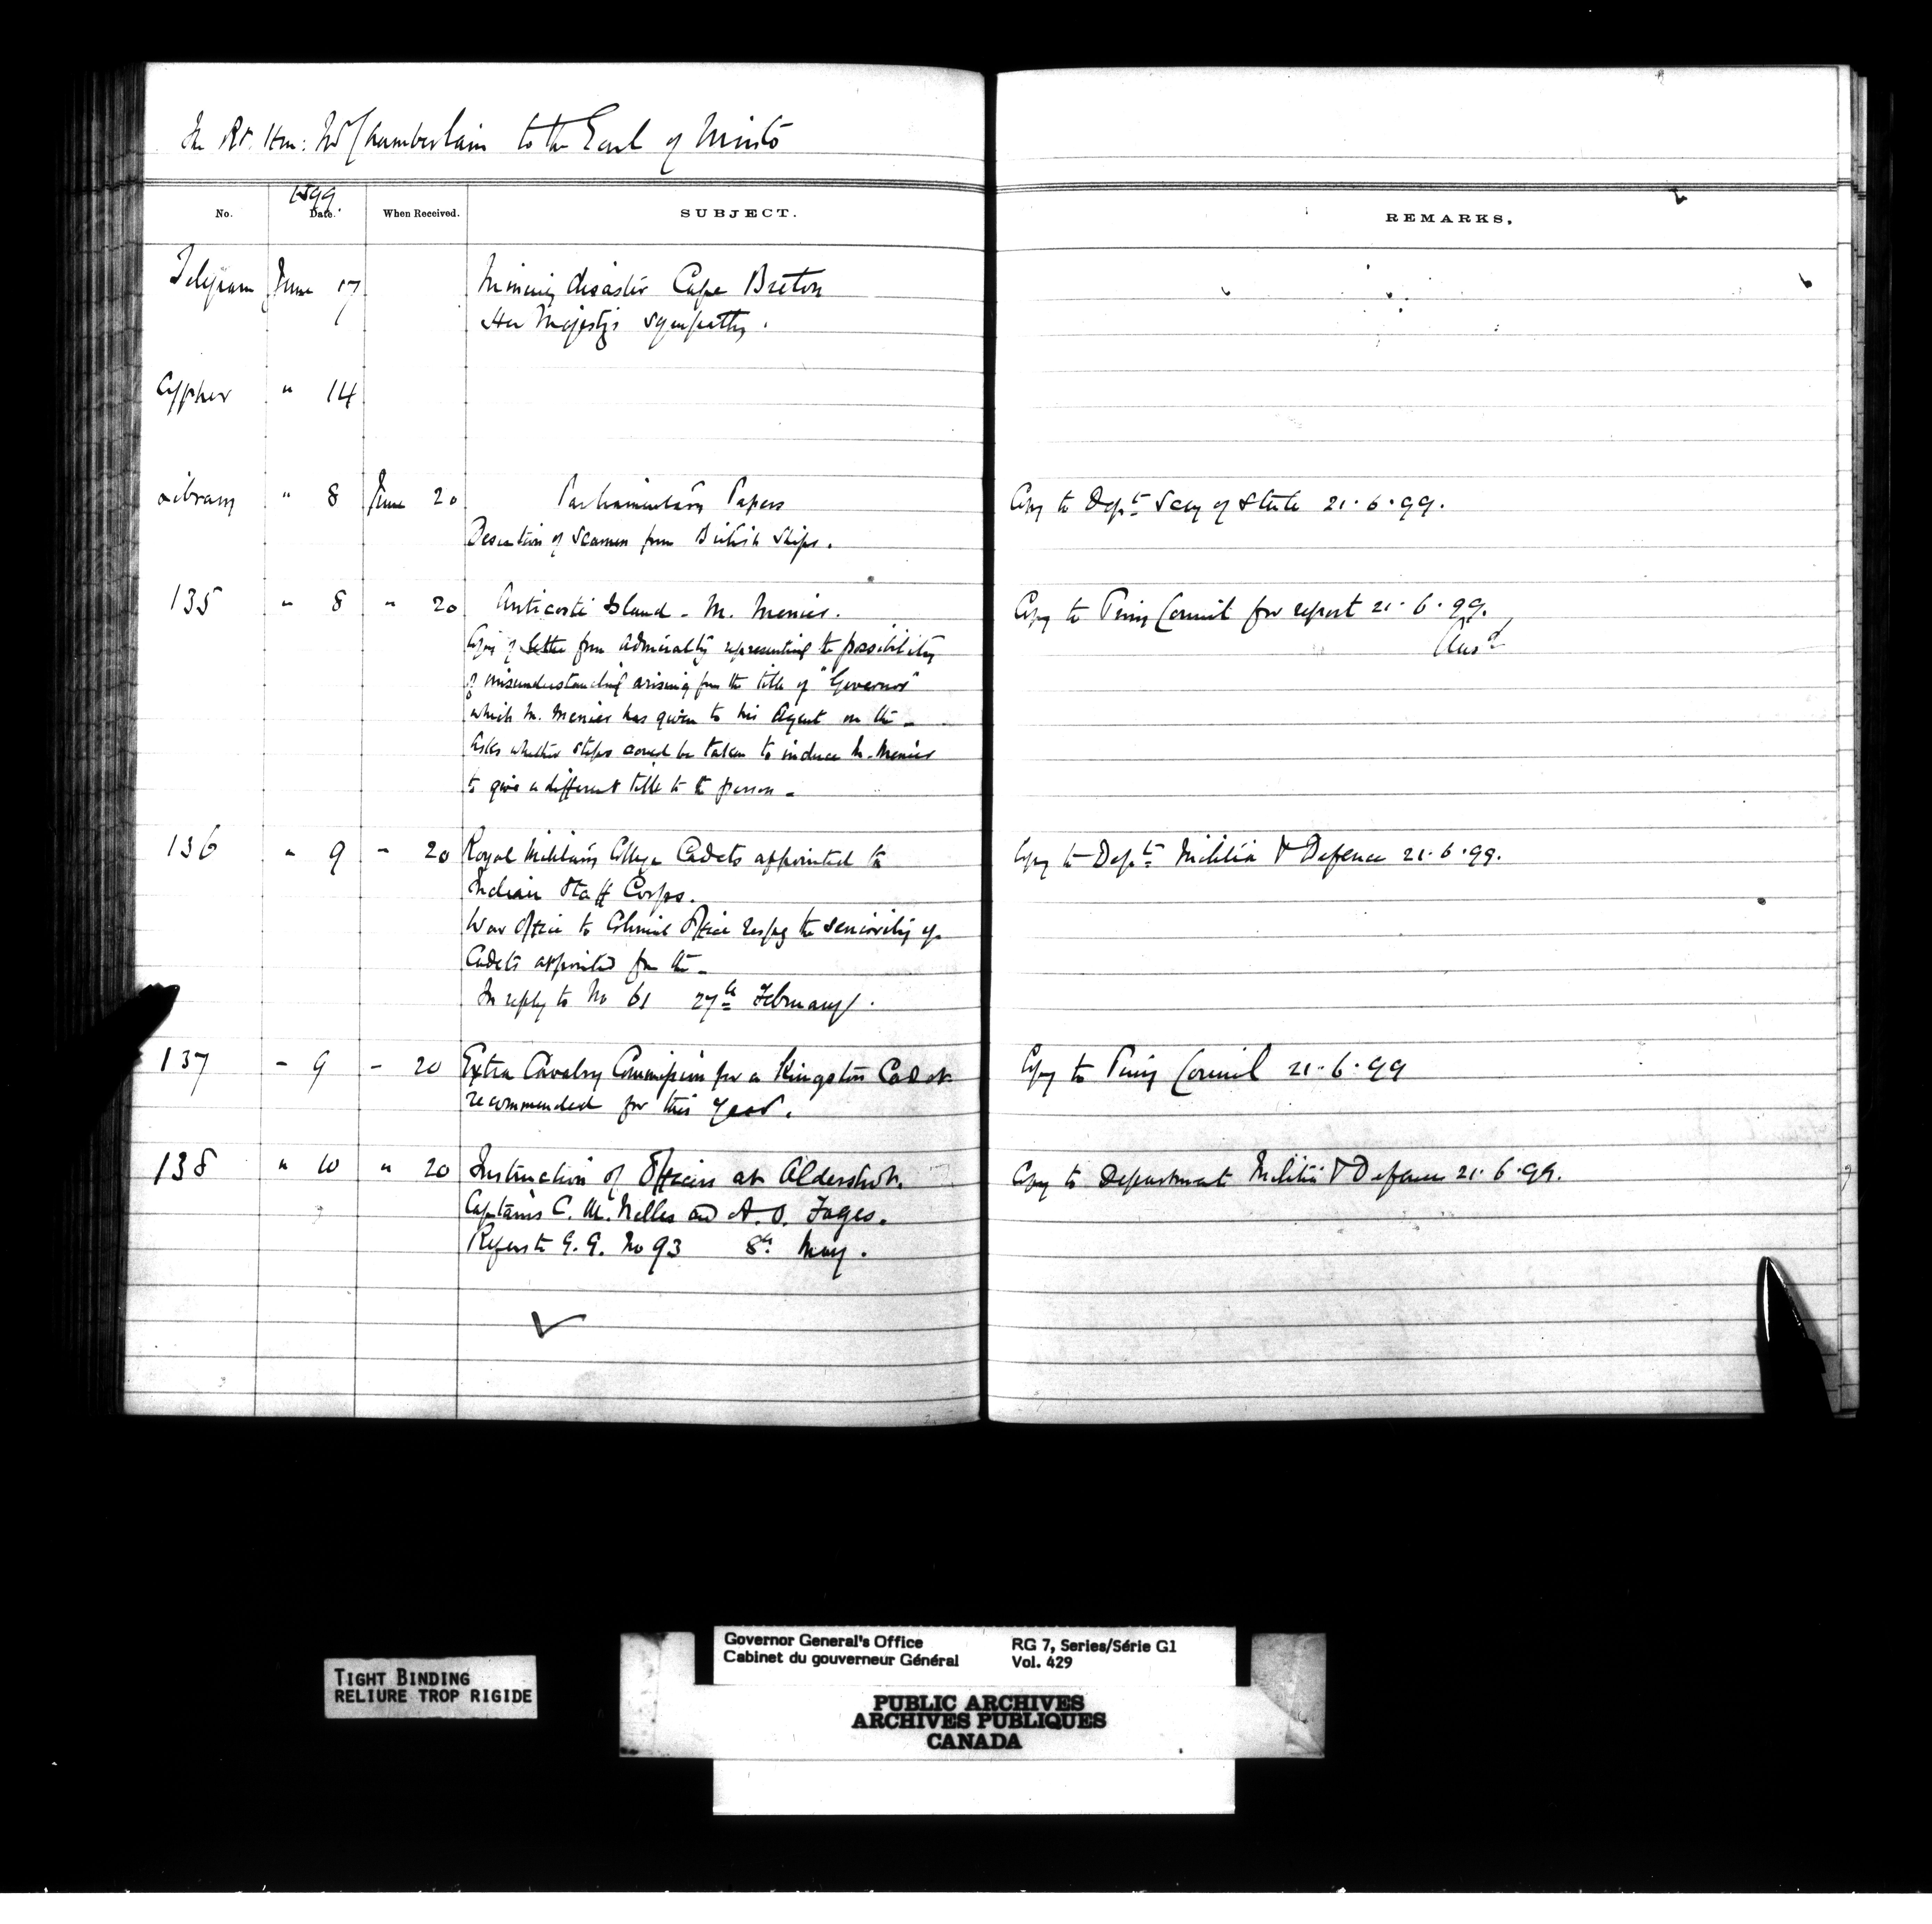 The Rt. Hon: Mr Chamberlain to the Earl of Minto
1899
No. Date. When Received. SUBJECT. REMARKS.
Telegram June 17 Mining disaster Cape Breton
Her Majesty's sympathy.
Cypher " 14
Library " 8 June 20 Parliamentary Papers Copy to Dept Secy of State 21.6.99.
Desertion of Seamen from British Ships.
135 " 8 " 20 Anticosti Island - M. Menier. Copy to Privy Council for report 21.6.99.
Ansd
Copy of letter from Admiralty representing the possibility
of misunderstanding arising from the title of "Governor"
which M. Menier has given to his Agent on the -
Asks whether steps could be taken to induce M. Menier
to give a different title to the person -
136 " 9 " 20 Royal Military College Cadets appointed to Copy to Dept Militia & Defence 21.6.99.
Indian Staff Corps.
War Office to Colonial Office respg the seniority of
Cadets appointed from the -
In reply to No 61 27th February.
137 - 9 - 20 Extra Cavalry Commission for a Kingston Cadet Copy to Privy Council 21.6.99
recommended for this year.
138 " 10 " 20 Instruction of Officers at Aldershot. Copy to Department Militia & Defence 21.6.99.
Captains C. M. Nelles and A. O. Fages.
Refers to G. G. No 93 8th May.
TIGHT BINDING
RELIURE TROP RIGIDE
Governor General's Office RG 7, Series/Série G1
Cabinet du gouverneur Général Vol. 429
PUBLIC ARCHIVES
ARCHIVES PUBLIQUES
CANADA